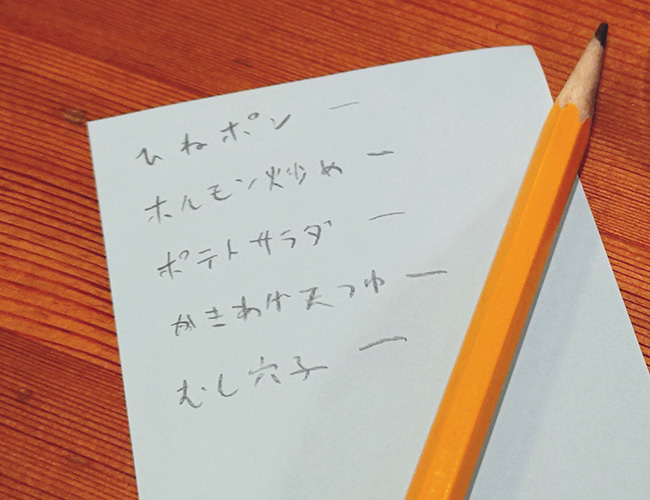 ひねポン 一
ホルモン炒め 一
ポテトサラダ 一
かきあげ天つゆ 一
むし穴子 一